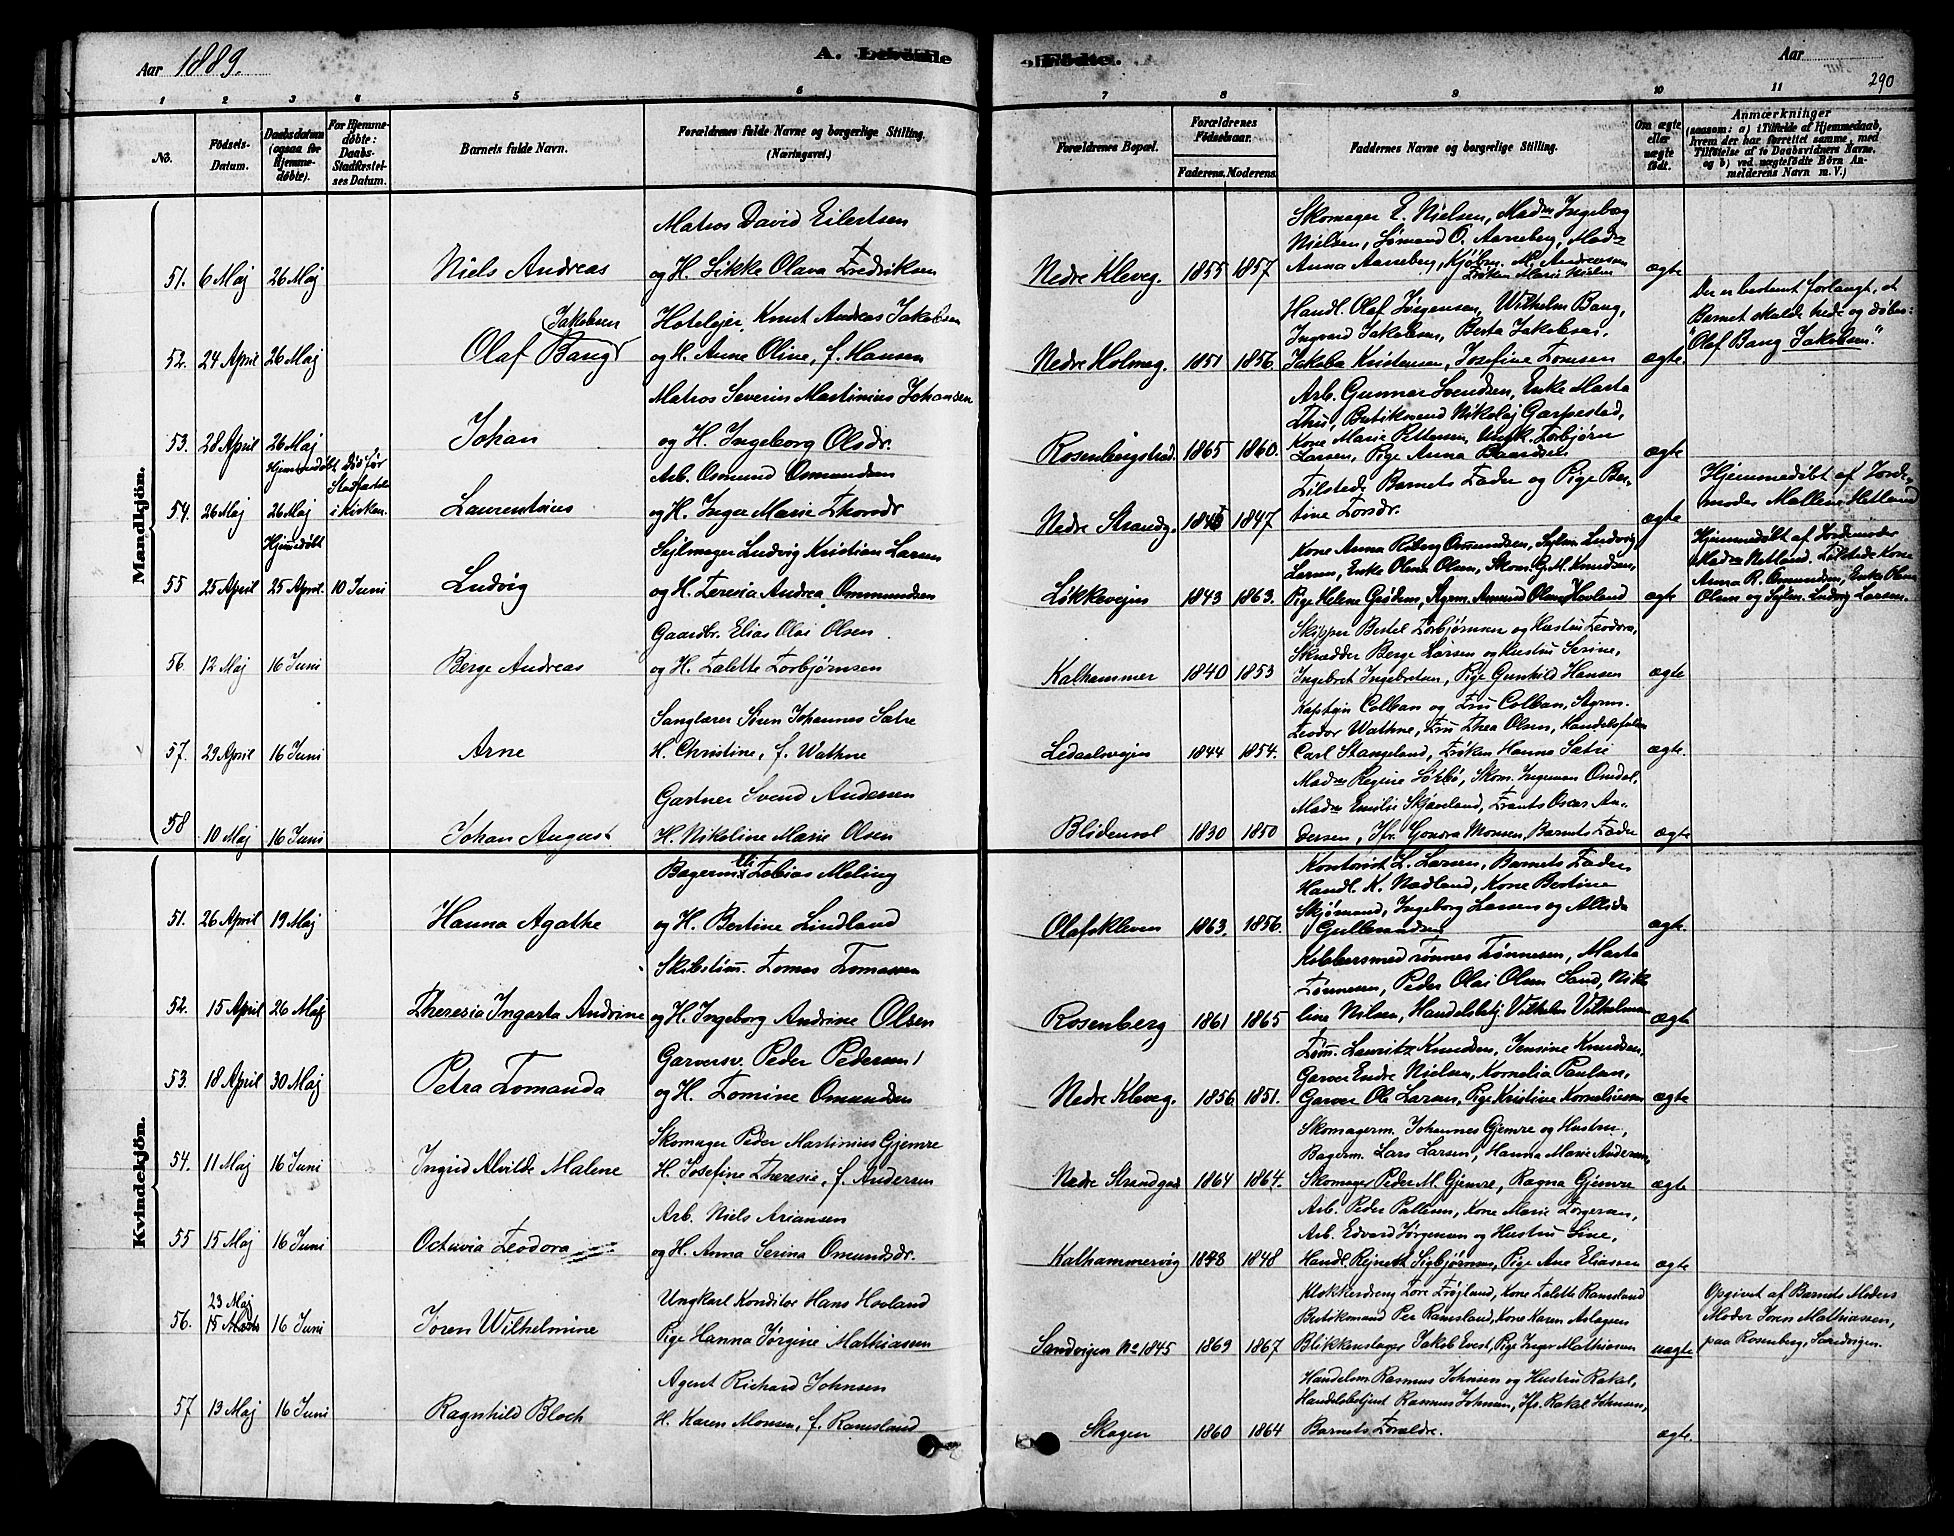 Aar 1889.
A. Levende
Fødte.
Aar
290
1 2 3 4 5 6 7 8 9 10 11
No.
Fødsels-Datum.
Daabsdatum (ogsaa for Hjemmedøbte).
For Hjemmedøbte: Daabs-Stadfæstelses Datum.
Barnets fulde Navn.
Forældrenes fulde Navne og borgerlige Stilling. (Næringsvei.)
Forældrenes Bopæl.
Forældrenes Fødselsaar.
Faderens. Moderens.
Faddernes Navne og borgerlige Stilling.
Om ægte eller uægte født.
Anmærkninger
(saasom: a) i Tilfælde af Hjemmedaab, hvem der har forrettet samme, med Tilføielse af to Daabsvidners Navne, og b) ved uægtefødte Børn Anmelderens Navn m. V.)
Mandkjön.
Matros David Eilertsen
51. 6 Maj 26 Maj Niels Andreas og H. Sikke Olava Fredriksen
Skomager E. Nielsen, Mad. Ingeborg
Nielsen, Sømand O. Aarreberg, Mad.
Nedre Kleveg. 1855 1857 Anna Aarreberg, Kjøbm. M. Andreassen Frøken Marie Nielsen ægte
Jakobsen
Hoteleier Knut Andreas Jakobsen
52. 24 April 26 Maj Olaf Bang og H. Anne Oline, f. Hansen
Handl. Olaf Jørgensen, Wilhelm Bang,
Ingvard Jakobsen, Berta Jakobsen,
Nedre Holmeg. 1851 1856. Jakoba Kristensen, Josefine Tomsen ægte.
Der er bestemt forlangt, at
Barnet skal hede og døbes:
"Olaf Bang Jakobsen."
Matros Severin Martinius Johansen
53. 28 April 26 Maj Johan og H. Ingeborg Olsdr.
Arb. Gunnar Svendsen, Enke Marta
Thu, Butiksvend Nikolaj Garpestad,
Kone Marie Pettersen, Ungk. Torbjørn
Rosenbergstrad. 1865 1860. Larsen, Pige Anna Baardsen ægte
Hjemmedøbt Død før Stadfæstelse
Arb. Osmund Osmundsen
54. 26 Maj 26 Maj i Kirken. Laurentius og H. Inger Marie Thorsdr.
Tilstede Barnets Fader og Pige Ber-
Nedre Strandg. 1847 tine Torsdr. ægte
Hjemmedøbt af Jorde-
moder Mallene Hetland
Hjemmedøbt
Sejlmager Ludvig Kristian Larsen
55 25 April 25 April. 10 Juni Ludvig og H. Teresia Andrea Ommundsen
Kone Anna Roberg Omundsen, Sejlm. Ludvig
Larsen, Enke Olene Olsen, Skom. G. M. Knudsen,
Løkkevejen 1843 1863. Pige Helene Grødem, Styrm. Amund Olsen Hovland ægte
Hjemmedøbt af Jordemoder
Mad. Hetland. Tilstede Kone
Anna R. Omundsen, Enke Olene
Olsen og Sejlm. Ludvig Larsen.
Gaardbr. Elias Olai Olsen
56. 12 Maj 16 Juni Berge Andreas og H. Talette Torbjørnsen
Skipper Bertel Torbjørnsen og Hustru Teodora,
Skrædder Berge Larsen og Hustru Serine,
Kalhammer 1840 1853 Ingebret Ingebretsen, Pige Gunhild Hansen ægte
Sanglærer Sven Johannes Sætre
57. 29 April 16 Juni Arne H. Christine, f. Wathne
Kaptejn Colban og Fru Colban, Styrm.
Teodor Wathne, Fru Thea Olsen, Handelsfulm.
Ledaalsvejen 1844 1854. Carl Stangeland, Frøken Hanna Sætre ægte.
Gartner Svend Andersen
58 10 Maj 16 Juni Johan August H. Nikoline Marie Olsen
Mad. Regine Sørbø, Skom. Ingeman Omdal,
Mad. Emilie Skjæveland, Frants Oscar An-
Blidensol 1830 1850 dersen, Jfr. Gonora Monsen, Barnets Fader ægte
Kvindekjön.
Bagerm. Eli Tobias Meling
51. 26 April 19 Maj Hanna Agathe og H. Bertine Lindland
Kontorist L. Larsen, Barnets Fader
Handl. K. Nadland, Kone Bertine
Skjømand, Ingeborg Larsen og Allida
Olafskleven 1863. 1856. Gullerandsen ægte.
Skibstøm. Tomas Tomassen
52. 15 April 26 Maj Theresia Ingarta Andrine og H. Ingeborg Andrine Olsen
Kobbersmed Tønnes Tønnesen, Marta
Tønnesen, Peder Olai Olsen Sand, Niko-
Rosenberg 1861 1865 line Nilsen, Handelsbetj. Vilhelm Vilhelmsen ægte
Garversv. Peder Pedersen
53. 18 April 30 Maj Petra Tomanda og H. Tomine Omundsen
Tøm. Lauritz Knudsen, Jensine Knudsen,
Garver Endre Nielsen, Kornelia Paulsen,
Nedre Kleveg. 1856. 1851. Garver Ole Larsen, Pige Kristine Korneliussen ægte
Skomager Peder Martinius Gjemre
54. 11 Maj 16 Juni Ingrid Alvilde Malene H. Josefine Theresie, f. Andersen
Skomagerm. Johannes Gjemre og Hustru,
Bagerm. Lars Larsen, Hanna Marie Andersen,
Nedre Strandgad 1864 1864. Skomager Peder M. Gjemre, Ragna Gjemre ægte
Arb. Niels Ariansen
55 15 Maj 16 Juni Octavia Teodora og H. Anna Serina Omundsdr.
Arb. Peder Pallesen, Kone Marie Torgersen,
Arb. Edvard Jørgensen og Hustru Line,
Kalhammervig 1848 1848 Handl. Rejnert Sigbjørnsen, Pige Ane Eliassen ægte
23 Maj
Ungkarl Konditor Hans Hovland
56. 15 Marts 16 Juni Joren Wilhelmine Pige Hanna Jørgine Mathiassen
Klokkerdreng Tore Frøjland, Kone Talette Ramsland
Butiksmand Per Ramsland, Kone Karen Aslagsen
Sandvigen No 1845 1869 1867 Blikkenslager Jakob Evest, Pige Inger Mathiassen uægte
Opgivet af Barnets Moders
Moder Joren Mathiassen,
paa Rosenberg, Sandvigen.
Agent Richard Johnsen
57 13 Maj 16 Juni Ragnhild Bloch H. Karen Monsen, f. Ramsland
Handelsm. Rasmus Johnsen og Hustru Rakel,
Handelsbetjent Rasmus Johnsen, Jfr. Rakel Johnsen,
Skagen 1860 1864 Barnets Forældre. ægte.